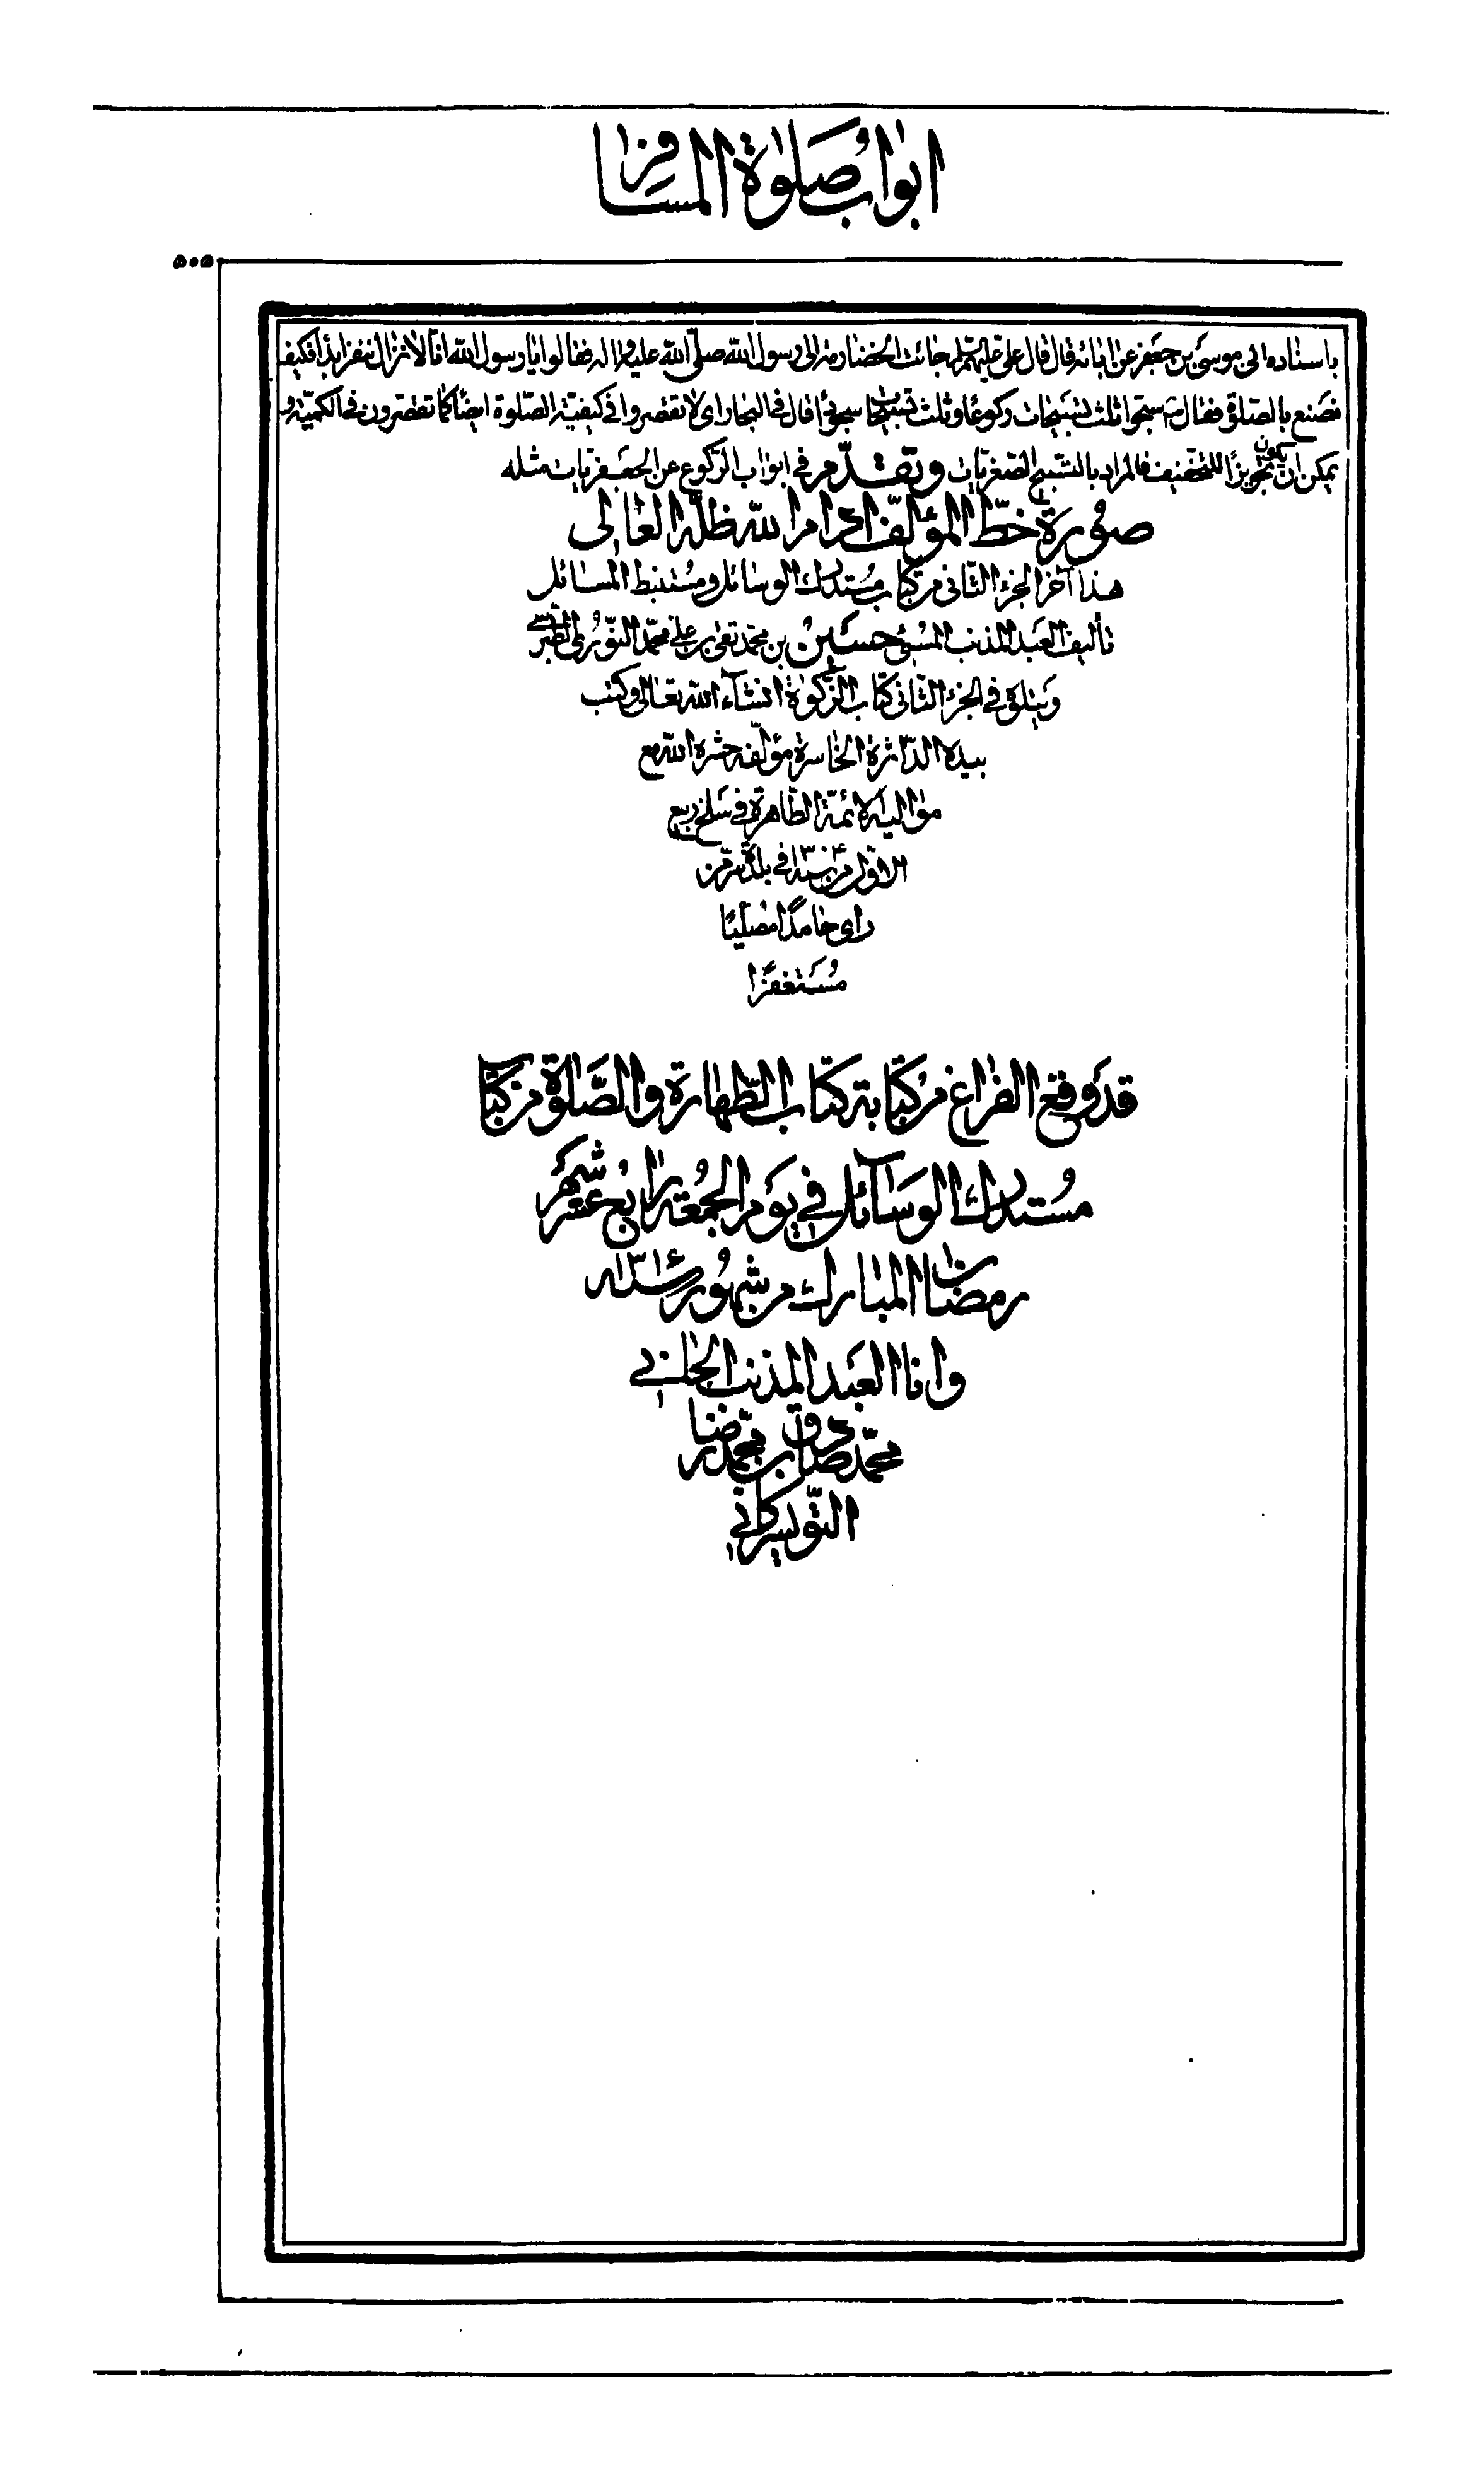 ابواب صلوة المسافر
۵۰۵
باسناده الى موسى بن جعفر عن ابائه قال قال على عليه السلم جائت الخضارمة الى رسول الله صلى الله عليه واله فقالوا يا رسول الله انا لا نزال ننفر ابدا فكيف
نصنع بالصلوة فقال سبحوا ثلث تسبيحات ركوعا وثلث تسبيحات سجودا قال فى البحار اى لا تقصروا فى كيفية الصلوة ايضا كما تقصرون فى الكمية و
يمكن ان يكون تجويزا للتخفيف فالمراد بالتسبيح الصغريات وتقدم فى ابواب الركوع عن الجعفريات مثله
صورة خط المؤلف ادام الله ظله العالى
هذا آخر الجزء الثانى من كتاب مستدرك الوسائل ومستنبط المسائل
تأليف العبد المذنب المسئ حسين بن محمد تقى بن على محمد النورى الطبرسى
ويتلوه فى الجزء الثانى كتاب الزكوة انشاء الله تعالى وكتب
بيده الداثرة الخاسرة مؤلفه حشره الله مع
مواليه الائمة الطاهرة فى سلخ ربيع
الاول من سنة ۱۳۰۴ فى بلدة سر من
راى حامدا مصليا
مستغفرا
قد وقع الفراغ من كتابة كتاب الطهارة والصلوة من كتاب
مستدرك الوسآئل فى يوم الجمعة رابع عشر شهر
رمضان المبارك من شهور سنه
وانا العبد المذنب الجانى
محمد صادق بن محمد رضا
التويسركانى